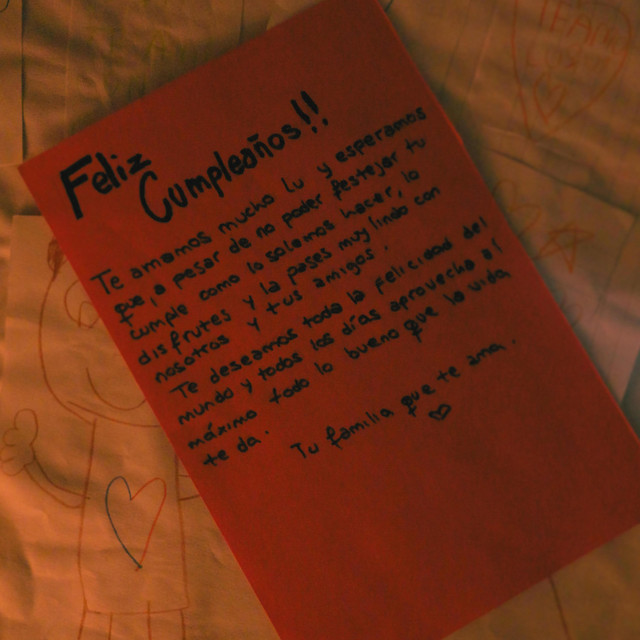 Feliz
Cumpleaños!!
Te amamos mucho Lu y esperamos
que a pesar de no poder festejar tu
cumple como lo solemos hacer, lo
disfrutes y la pases muy lindo con
nosotros y tus amigos.
Te deseamos toda la felicidad del
mundo y todos los días aprovecha al
máximo todo lo bueno que la vida
te da.
Tu familia que te ama.